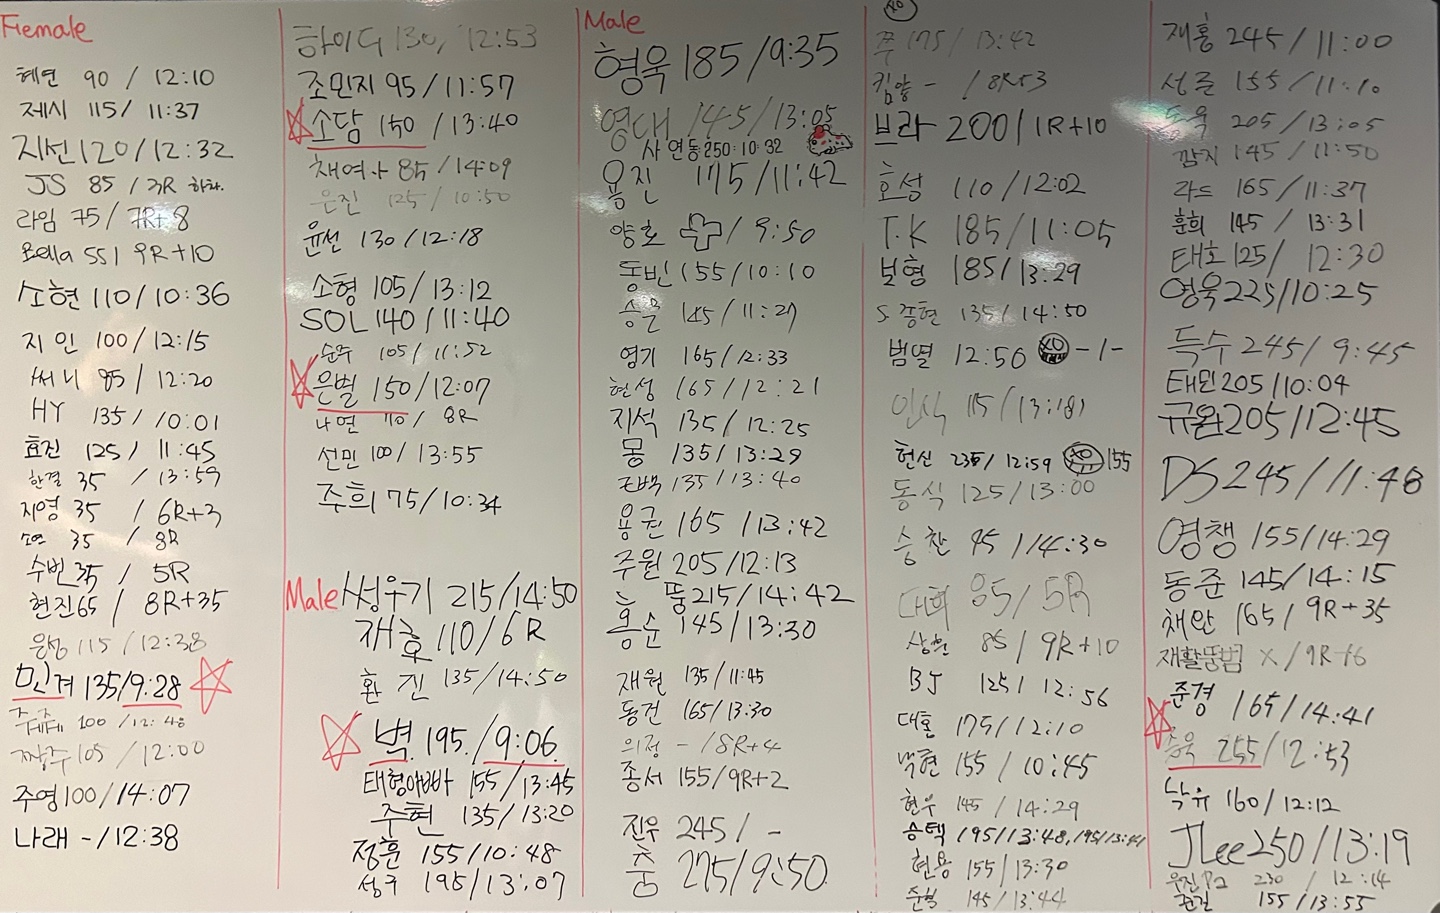 Female
혜연 90 / 12:10
제시 115 / 11:37
지선 120 / 12:32
JS 85 / 3R
라임 75 / 7R+8
Bella 55 / 9R+10
소현 110 / 10:36
지인 100 / 12:15
써니 85 / 12:20
HY 135 / 10:01
효진 125 / 11:45
한결 35 / 13:59
지영 35 / 6R+3
소연 35 / 8R
수빈 35 / 5R
현진 65 / 8R+35
은정 115 / 12:38
민겨 135 / 9:28
100 / 12:48
짜주 105 / 12:00
주영 100 / 14:07
나래 - / 12:38
하이디 130, 12:53
조민지 95 / 11:57
소담 150 / 13:40
채여사 85 / 14:09
은진 125 / 10:50
윤선 130 / 12:18
소형 105 / 13:12
SOL 140 / 11:40
순주 105 / 11:52
은별 150 / 12:07
나연 110 / 8R
선민 100 / 13:55
주희 75 / 10:34
Male
썽우기 215 / 14:50
재호 110 / 6R
환진 135 / 14:50
벽 195. / 9:06.
태형아빠 155 / 13:45
주현 135 / 13:20
정훈 155 / 10:48
성구 195 / 13:07
Male
형욱 185 / 9:35
영대 145 / 13:05
사연동 250:10:32
용진 175 / 11:42
양호 / 9:50
동빈 155 / 10:10
승문 145 / 11:27
영기 165 / 12:33
현성 165 / 12:21
지석 135 / 12:25
몽 135 / 13:29
135 / 13:40
용권 165 / 13:42
주원 205 / 12:13
뚱 215 / 14:42
홍순 145 / 13:30
재원 135 / 11:45
동건 165 / 13:30
의정 - / 8R+4
종서 155 / 9R+2
진우 245 / -
춤 275 / 9:50.
XO
쭈 175 / 13:42
킴양 - / 8R+3
브라 200 / 1R+10
호성 110 / 12:02
T.K 185 / 11:05
보형 185 / 13:29
S 중현 135 / 14:50
범열 12:50 XO - / -
인식 115 / 13:18
헌신 235 / 12:59 XO 155
동식 125 / 13:00
승찬 95 / 14:30
대희 85 / 5R
상현 85 / 9R+10
BJ 125 / 12:56
대홍 175 / 12:10
155 / 10:45
현우 145 / 14:29
승택 195 / 13:48, 195 / 13:41
현용 155 / 13:30
준혁 145 / 13:44
재홍 245 / 11:00
성준 155 / 11:10
동욱 205 / 13:05
깜지 145 / 11:50
라드 165 / 11:37
훈희 145 / 13:31
태호 125 / 12:30
영욱 225 / 10:25
득수 245 / 9:45
태민 205 / 10:04
규완 205 / 12:45
DS 245 / 11:48
영챙 155 / 14:29
동준 145 / 14:15
채완 165 / 9R+35
재활뚱범 X / 9R+6
준경 165 / 14:41
승욱 255 / 12:53
낙유 160 / 12:12
JLee 250 / 13:19
230 / 12:14
준길 155 / 13:55